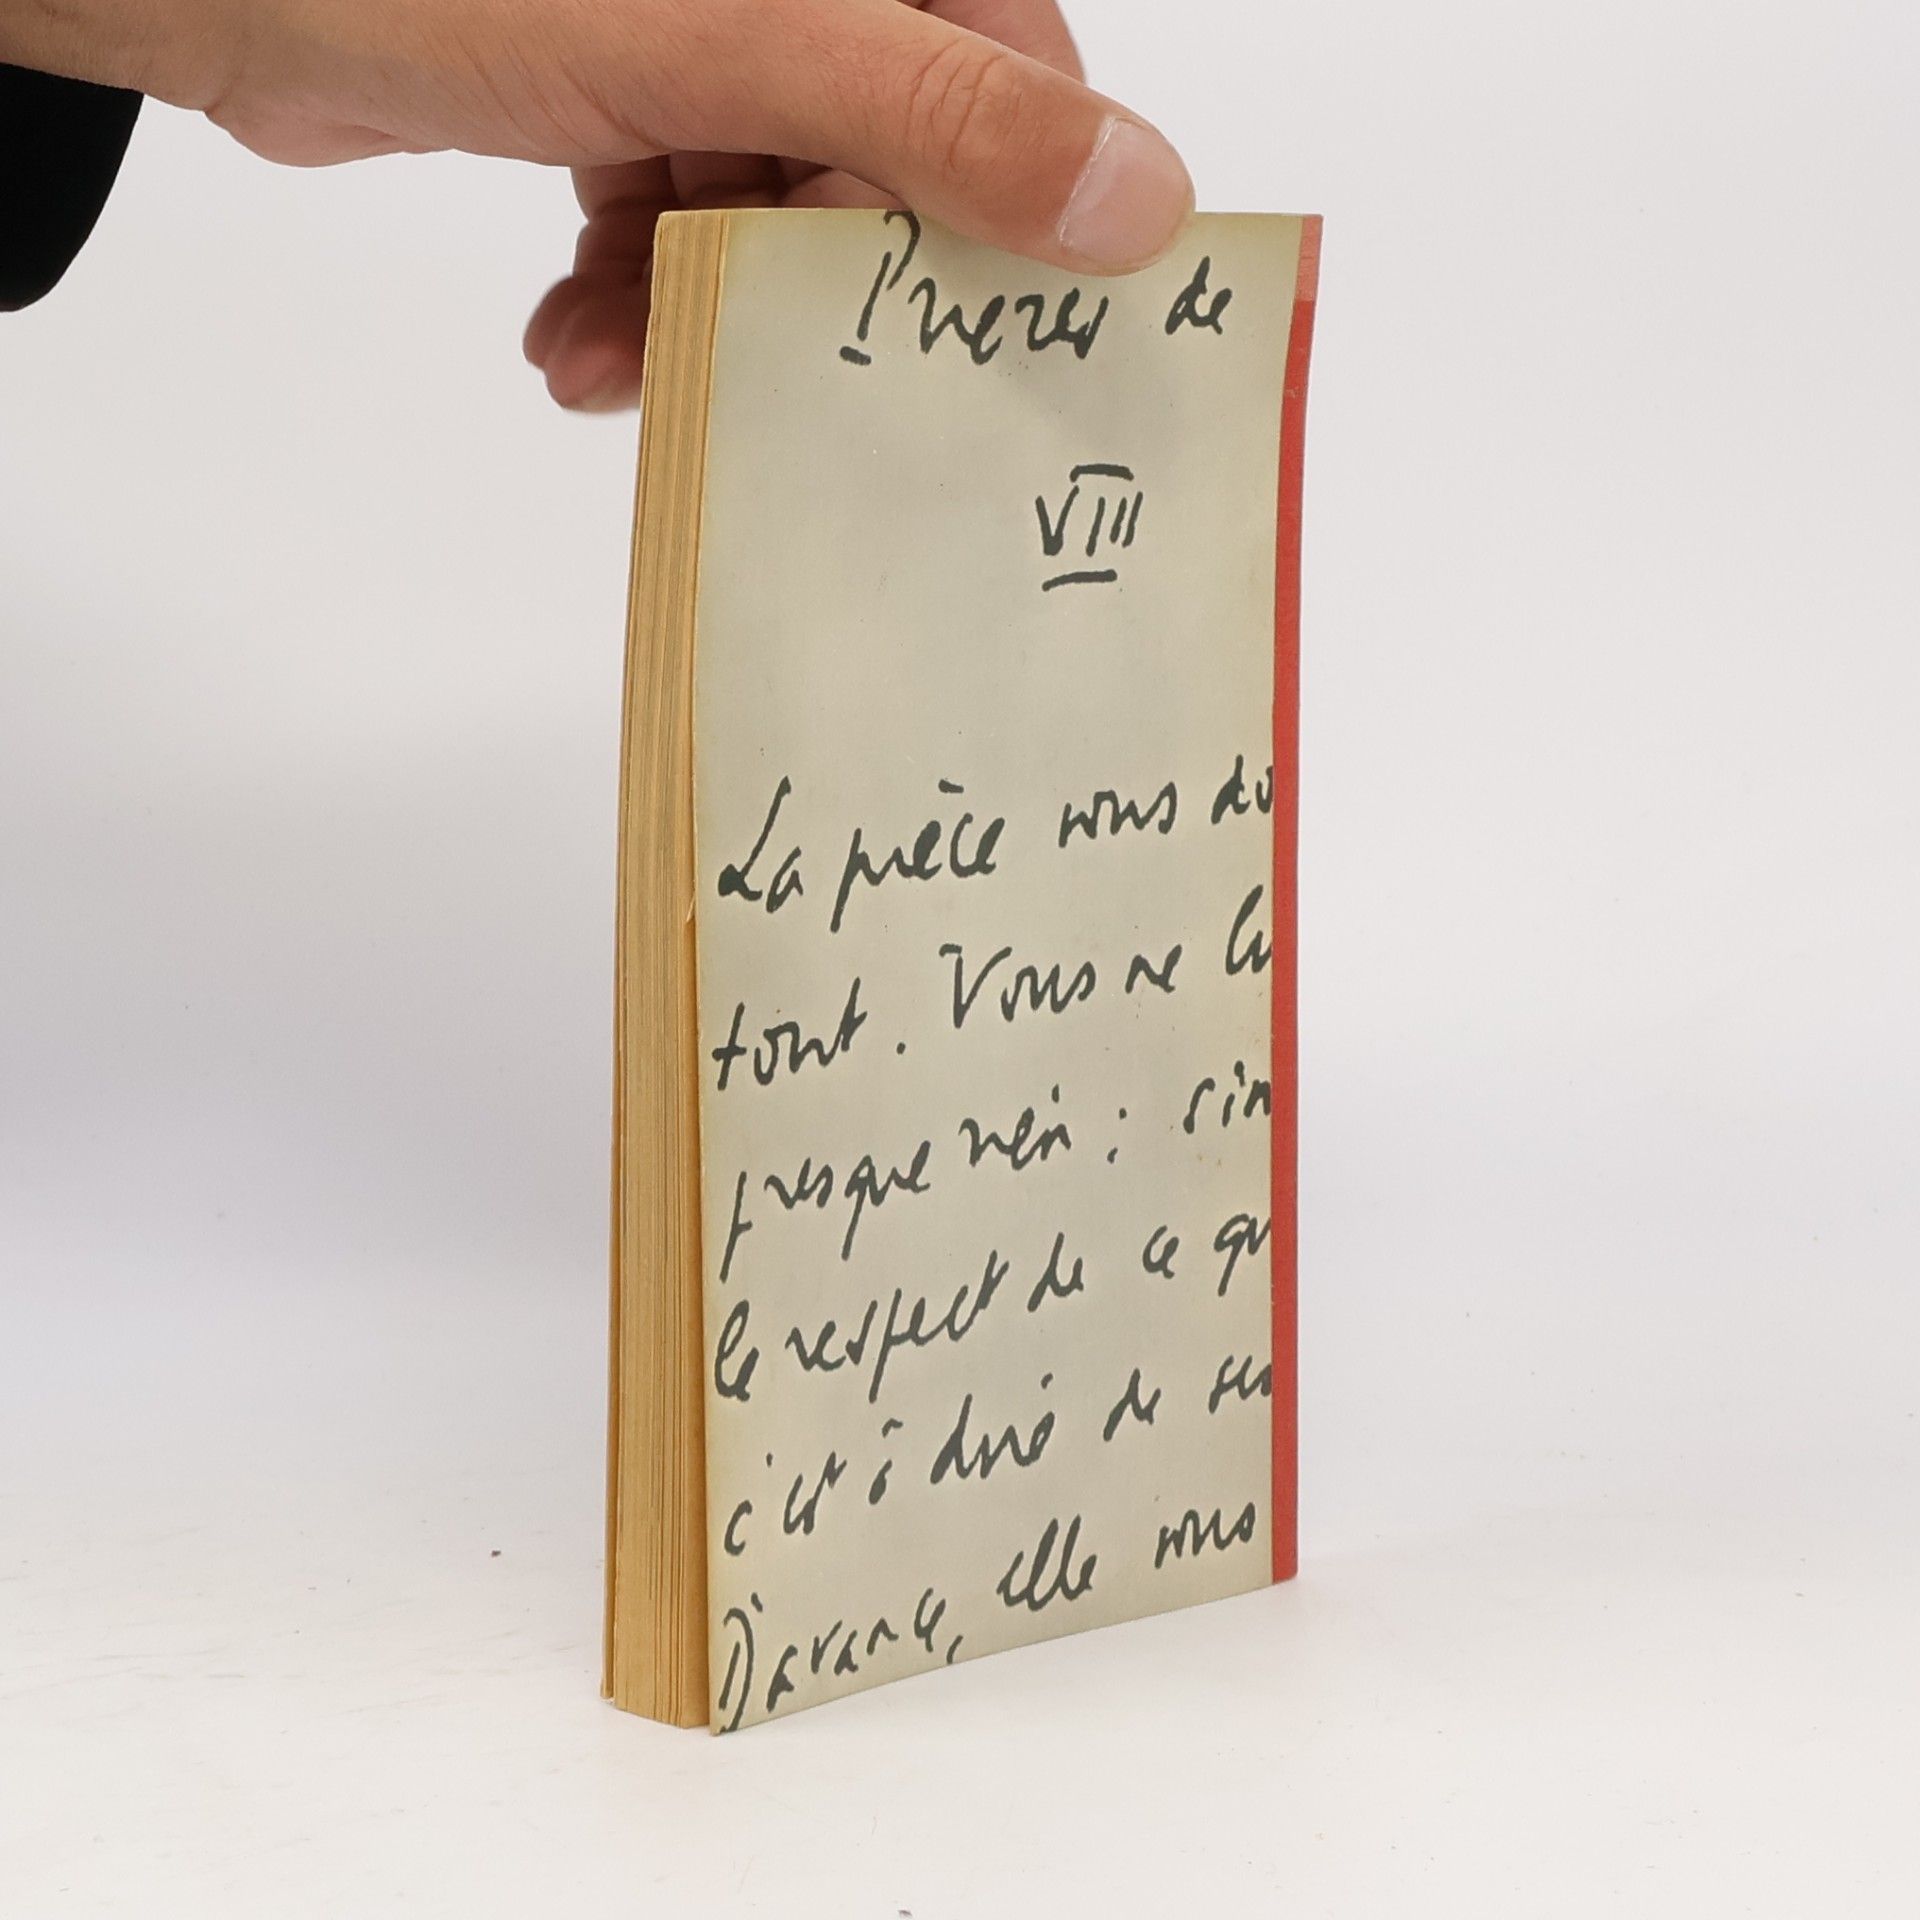 Pièces de
VIII
La pièce vous do
tout. Vous ne lu
presque rien : sin
le respect de ce qu
c'est à dire de ses
D'avance, elle vous